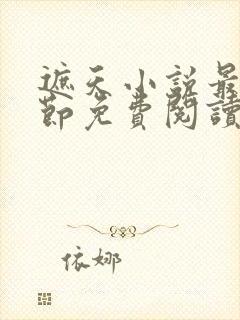 遮天小說最
節免費閱讀
依娜